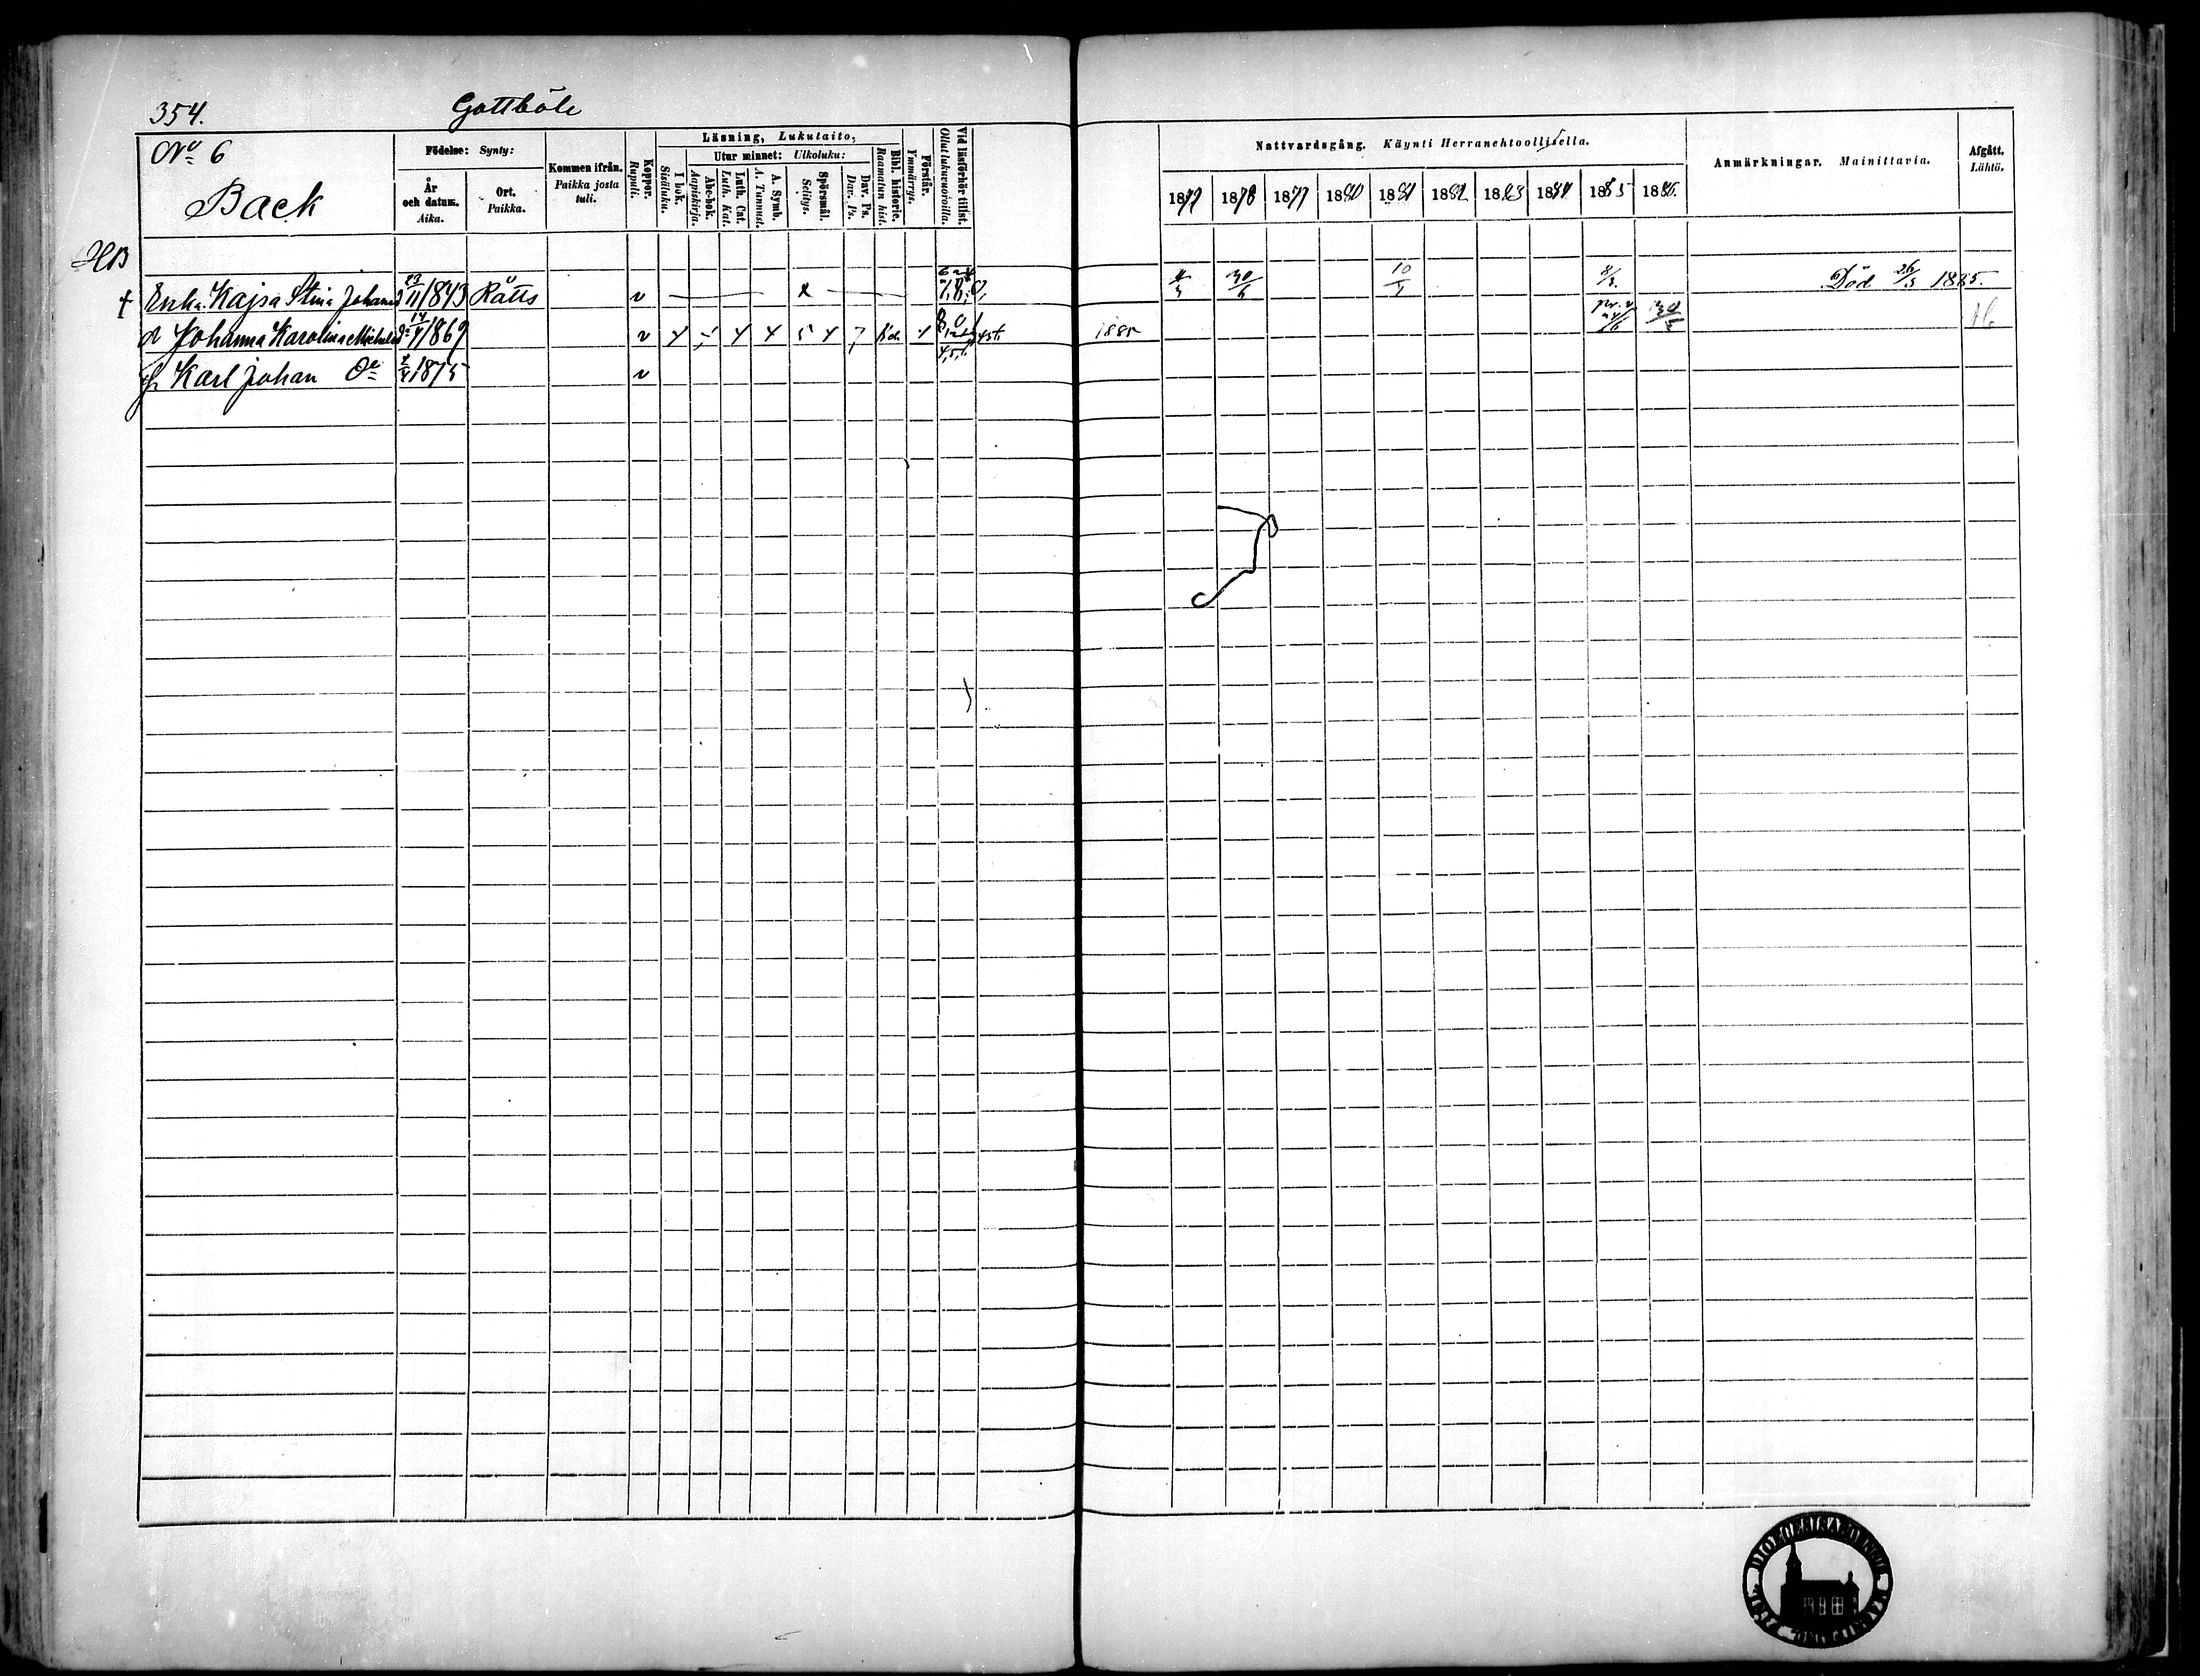 354. Gottböle
No 6
Back
HB
Födelse: Synty:
År och datum. Aika.
Ort. Paikka.
Kommen ifrån. Paikka josta tuli.
Koppor. Rupuli.
Läsning, Lukutaito,
I bok. Sisäluku.
Utur minnet: Ulkoluku:
Abc-bok. Aapiskirja.
Luth. Cat. Luth. Kat.
A. Symb. A. Tunnust.
Spörsmål. Selitys.
Dav. Ps. Dav. Ps.
Bibl. historie. Raamatun hist.
Förstår. Ymmärrys.
Vid läsförhör tillst. Ollut lukuvuoroilla.
Nattvardsgång. Käynti Herranehtoollisella.
1877 1878 1879 1880 1881 1882 1883 1884 1885 1886
Anmärkningar. Mainittavia.
Afgått. Lähtö.
† Enka Kajsa Stina Johansd 23/11 1843 Rätts v x 4/3 30/6 10/3 8/3 Död 26/3 1885.
d Johanna Karolina Michelsd 14/4 1869 v 4 4 4 5 4 7 1885 30/5
Karl Johan 2/4 1875 v